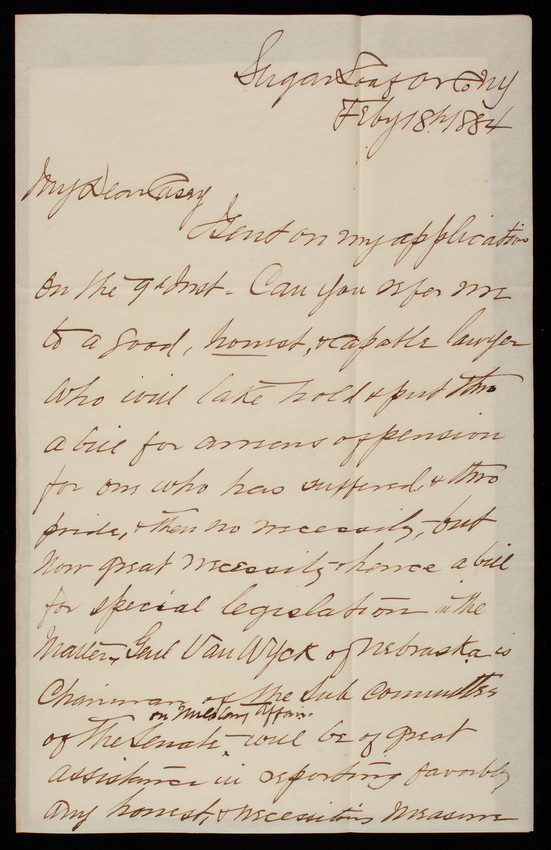 Sugar Loaf Or Co Ny
Feby 18th 1884
My Dear Casey
I sent on my application
on the 9th Inst - Can you refer me
to a good, honest, & capable lawyer
who will take hold & put thro
a bill for arrears of pension
for one who has suffered, & thro
pride, & then no necessity, but
now great necessity & hence a bill
for special legislation in the
matter, Genl Van Wyck of Nebraska is
Chairman of the Sub Committee
on Military Affairs
of the Senate, will be of great
assistance in reporting favorably
any honest, & necessitous measure